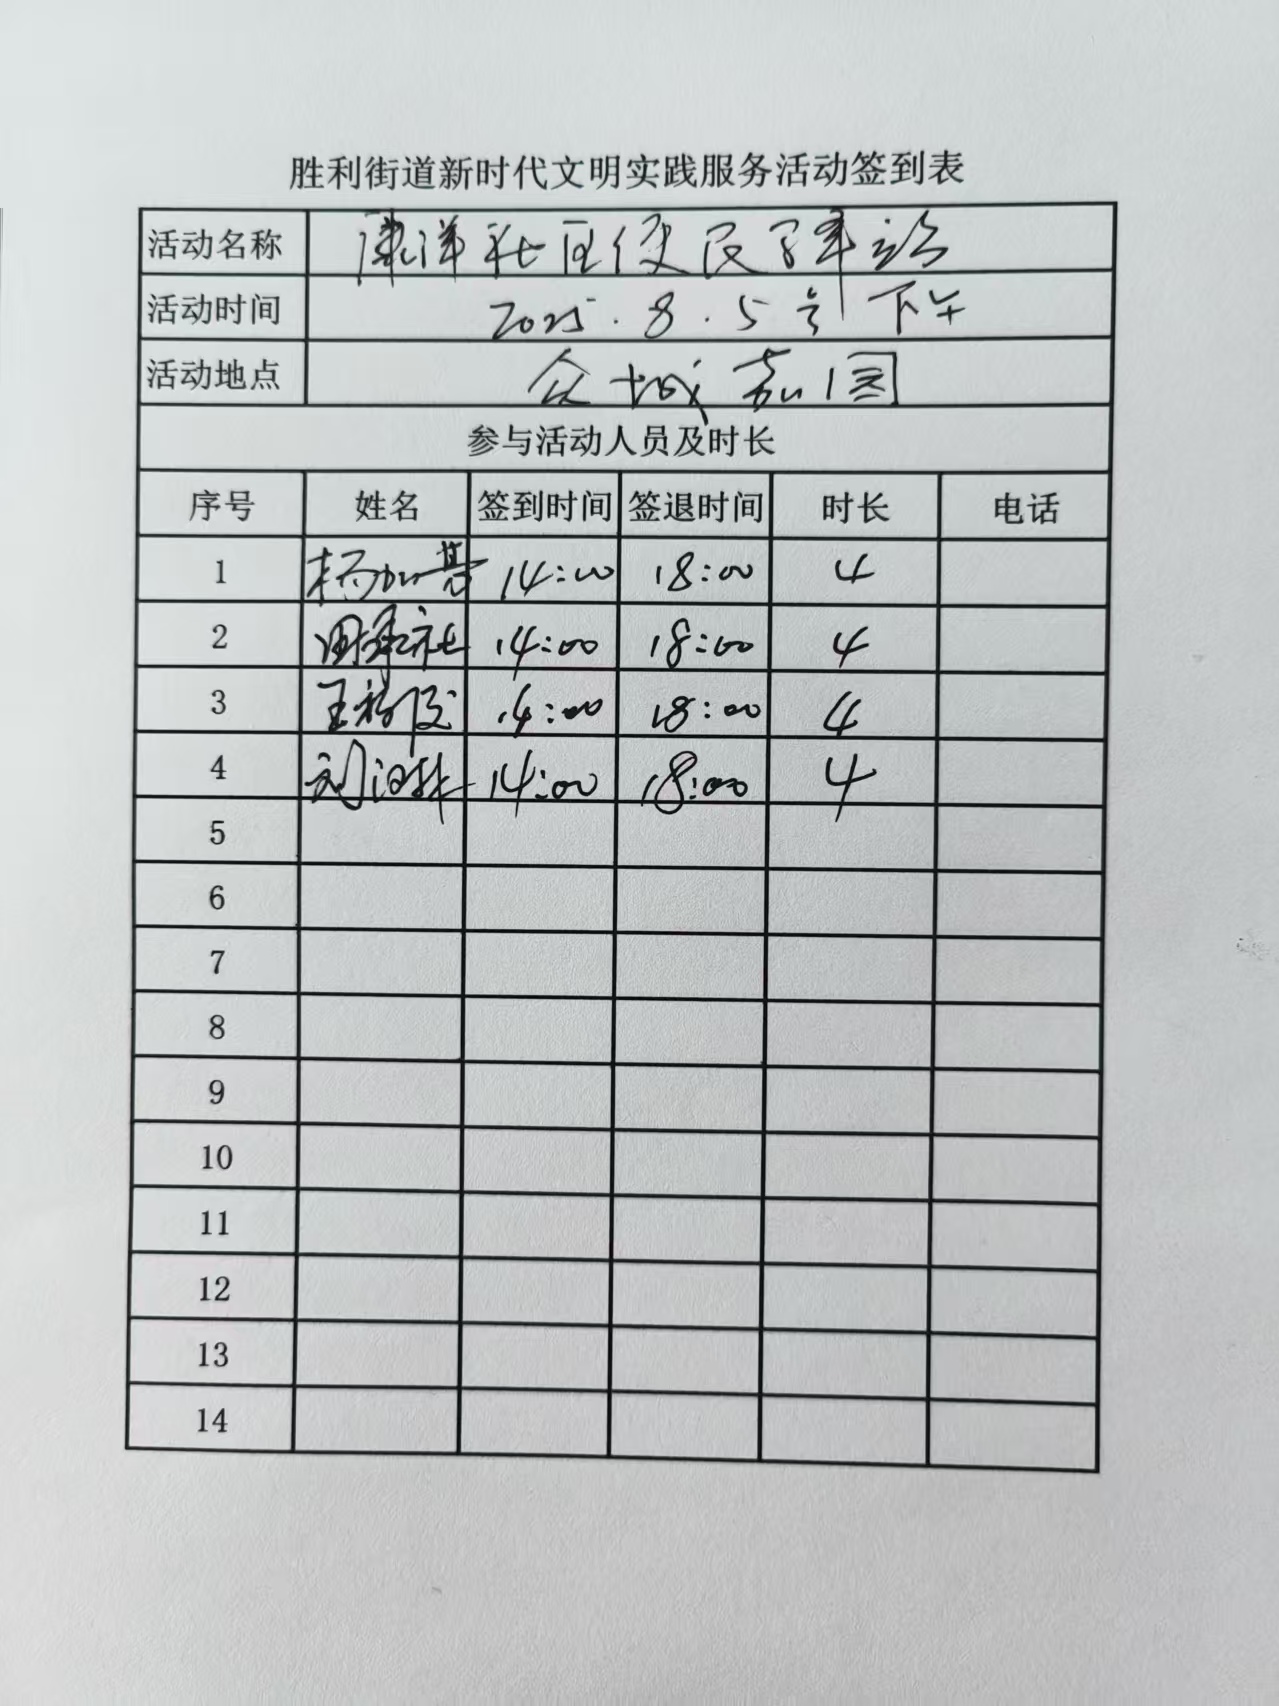 胜利街道新时代文明实践服务活动签到表
活动名称 康洋社区便民了单站
活动时间 2025.8.5号下午
活动地点 众城嘉园
参与活动人员及时长
序号 姓名 签到时间 签退时间 时长 电话
1 14:00 18:00 4
2 14:00 18:00 4
3 14:00 18:00 4
4 14:00 18:00 4
5
6
7
8
9
10
11
12
13
14